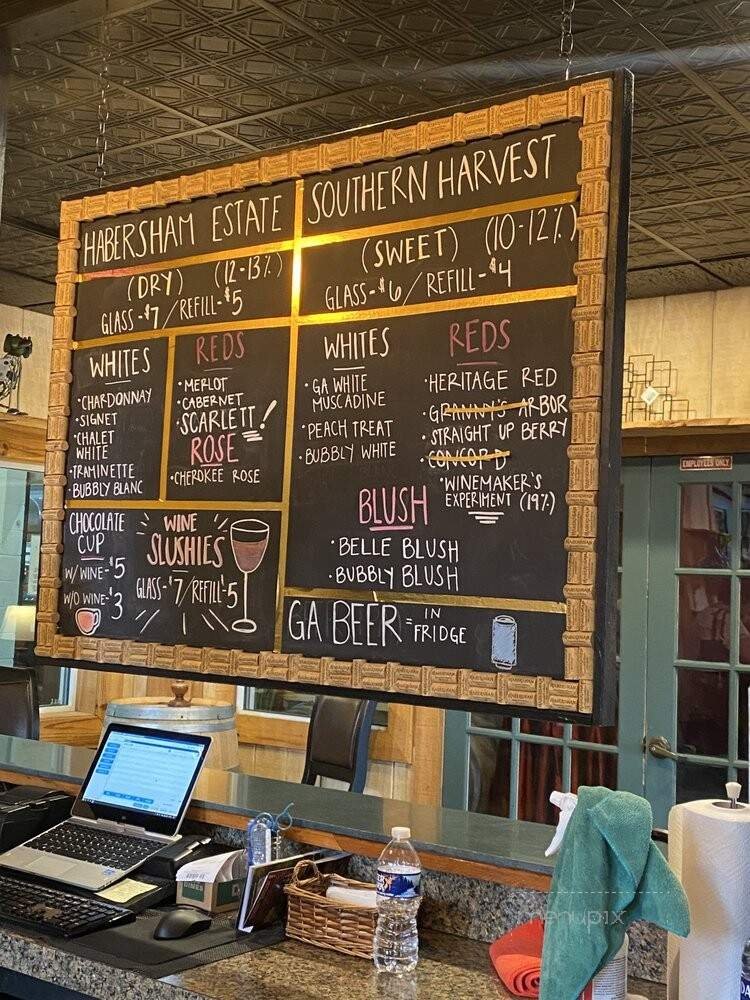 HABERSHAM ESTATE
(DRY) (12-13%)
GLASS-$7/REFILL-$5
WHITES
•CHARDONNAY
•SIGNET
•CHALET
WHITE
•TRAMINETTE
•BUBBLY BLANC
REDS
•MERLOT
•CABERNET
•SCARLETT!
ROSE
•CHEROKEE ROSE
CHOCOLATE
CUP
W/ WINE-$5
W/O WINE-$3
WINE
SLUSHIES
GLASS-$7/REFILL$5
SOUTHERN HARVEST
(SWEET) (10-12%)
GLASS-$6/REFILL-$4
WHITES
•GA WHITE
MUSCADINE
•PEACH TREAT
•BUBBLY WHITE
REDS
•HERITAGE RED
•GRANNY'S ARBOR
•STRAIGHT UP BERRY
•CONCORD
•WINEMAKER'S
EXPERIMENT (19%)
BLUSH
•BELLE BLUSH
•BUBBLY BLUSH
GA BEER = IN
FRIDGE
EMPLOYEES ONLY
menupix